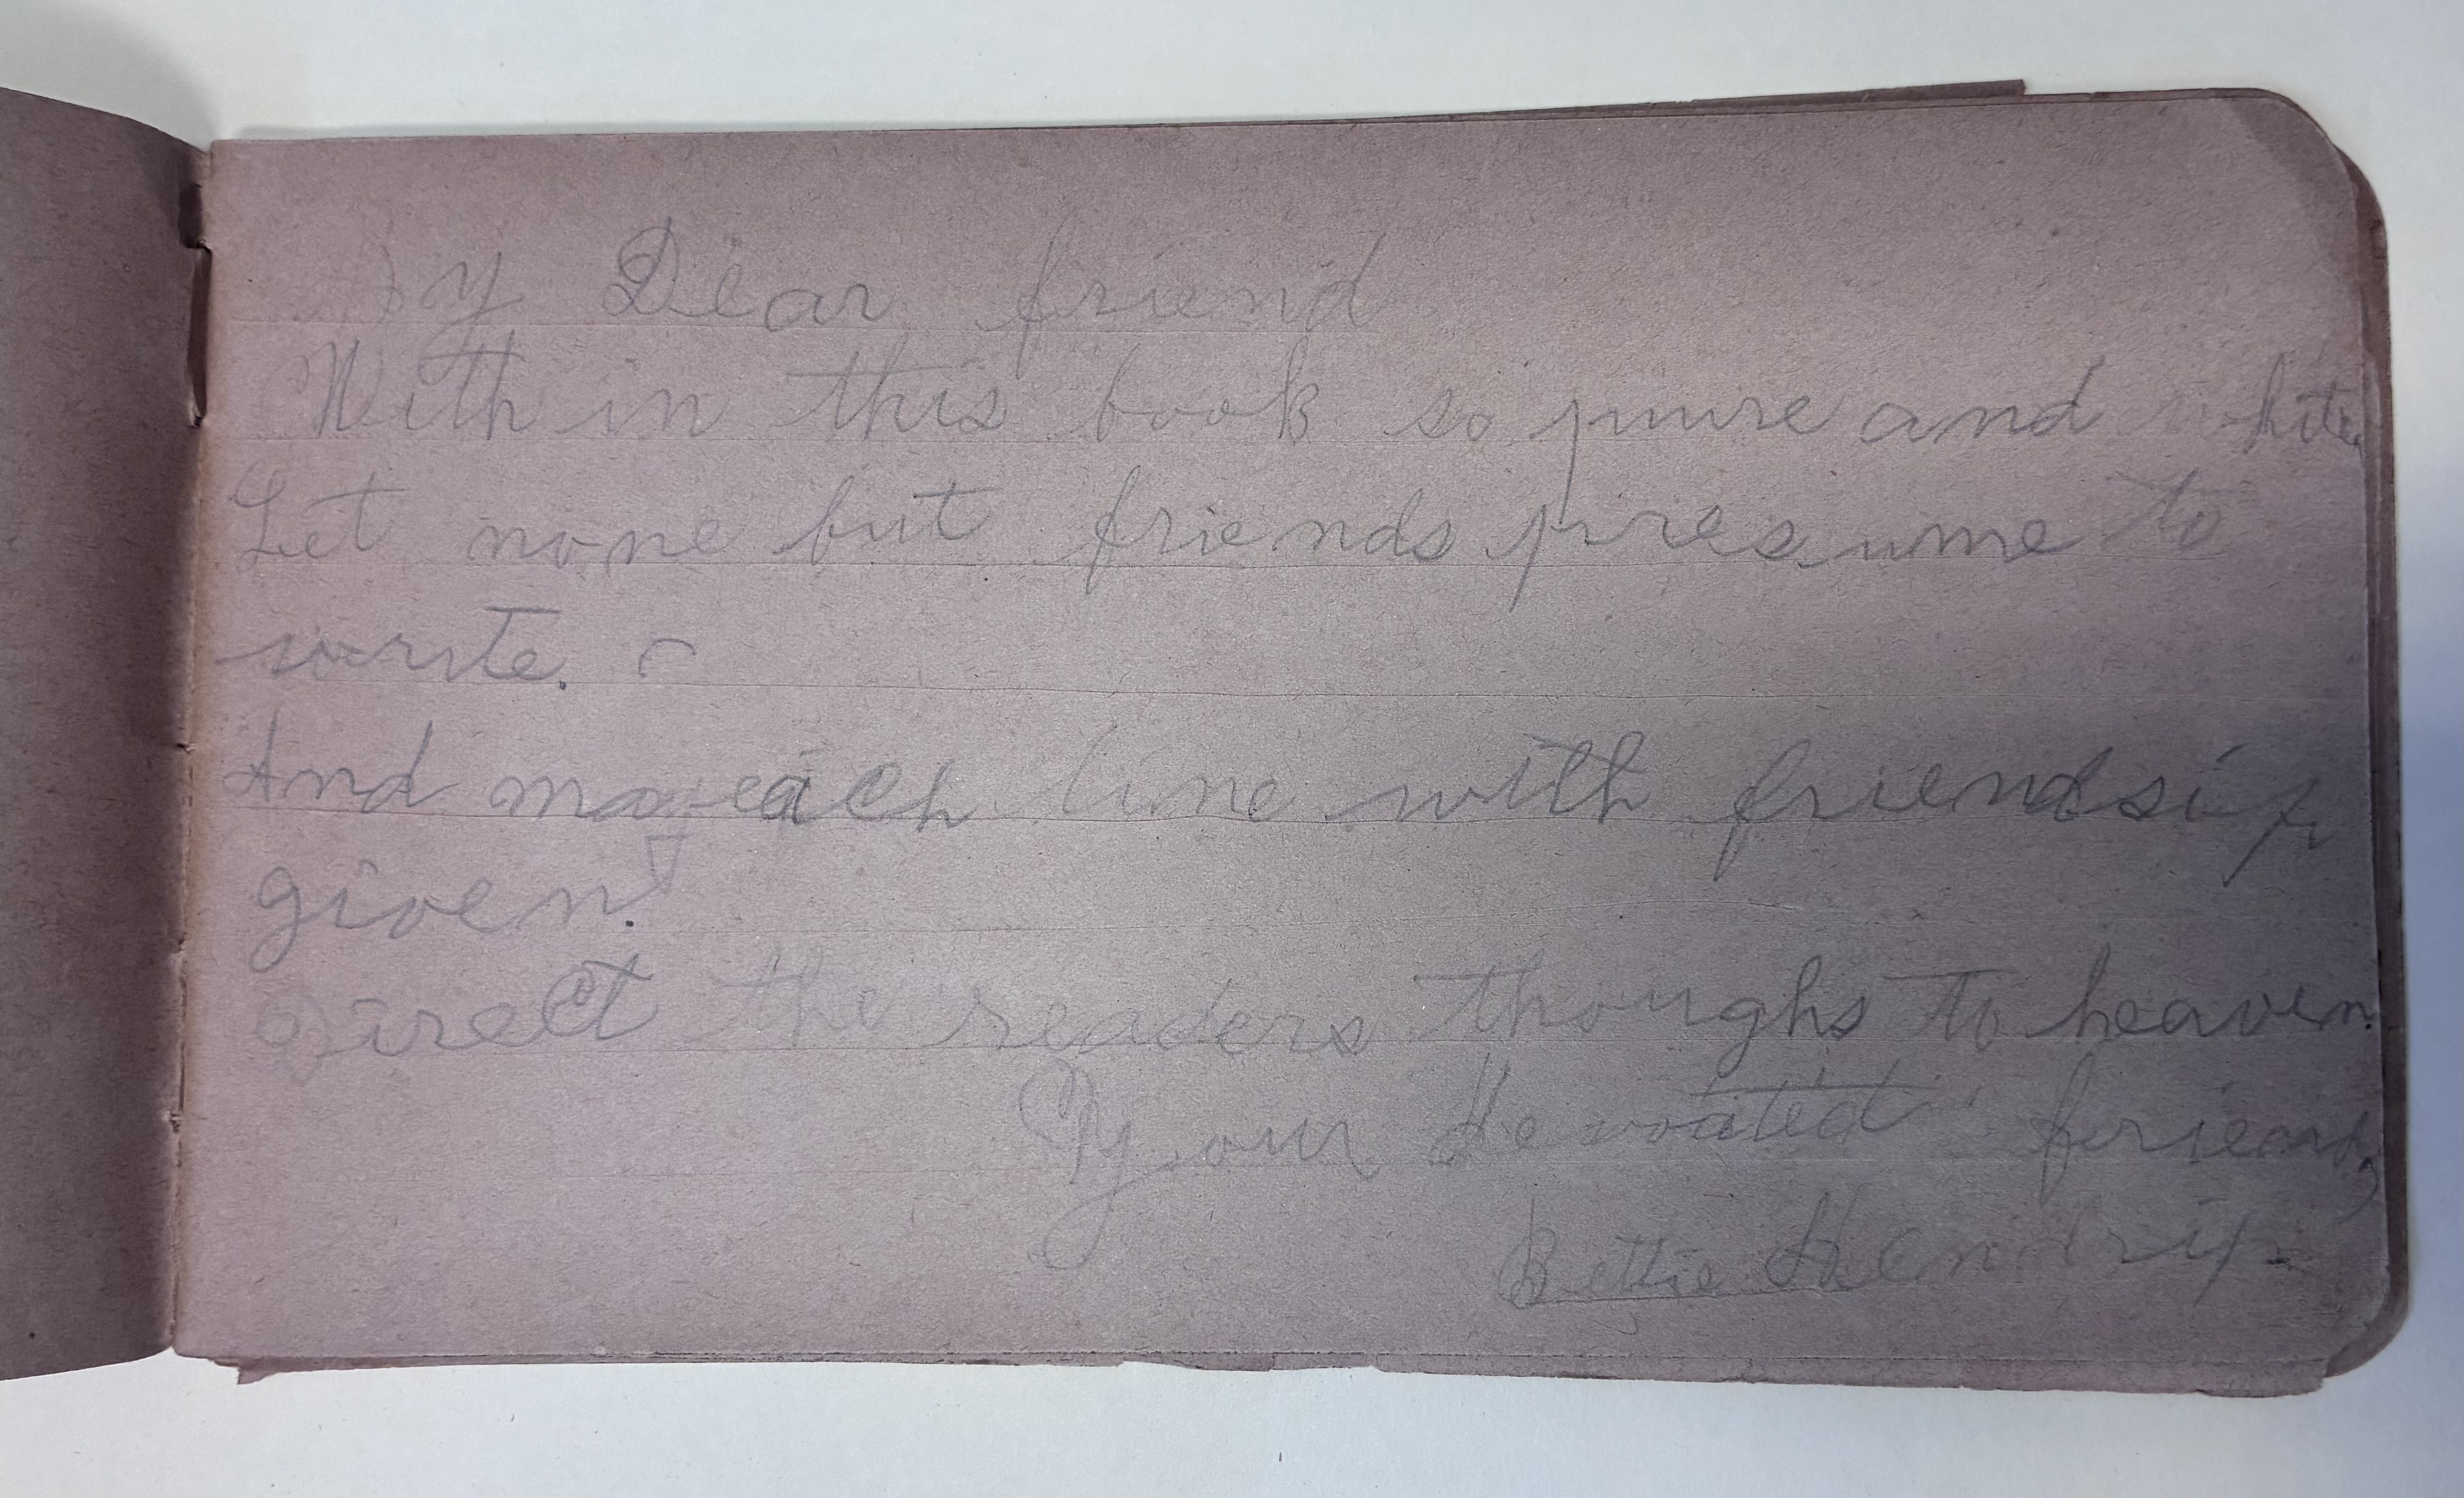 My Dear friend
With in this book so pure and white
Let none but friends presume to
write.
And may each line with friendsip
given.
Direct the readers thoughs to heaven.
Your devoted friend,
Bettie Hendrip